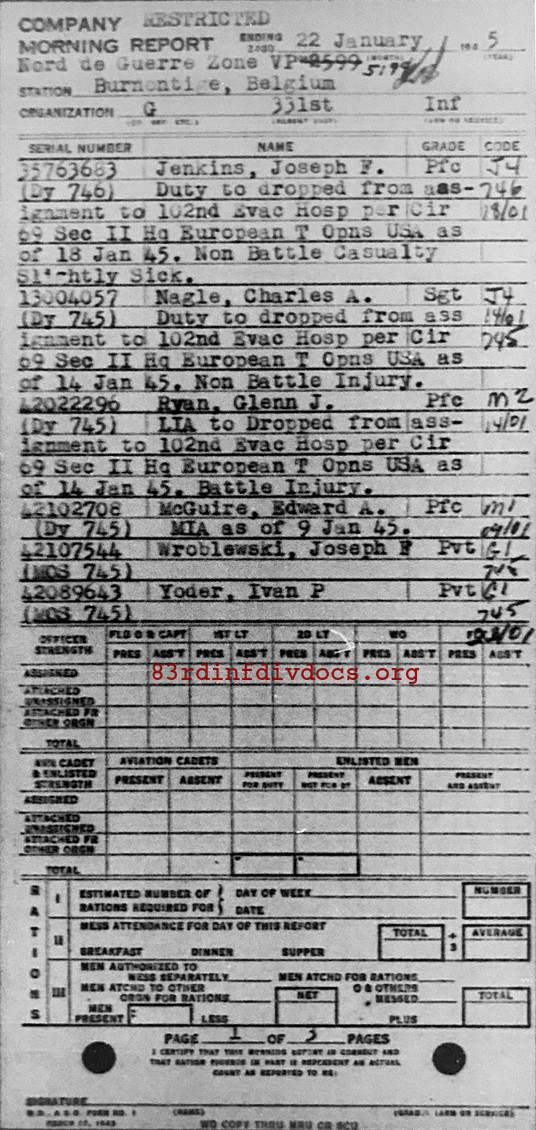 COMPANY RESTRICTED
MORNING REPORT ENDING 2400 22 January 1945
Nord de Guerre Zone VP-2599 5199
STATION Burnontige, Belgium
ORGANIZATION G 331st Inf
SERIAL NUMBER NAME GRADE CODE
35763683 Jenkins, Joseph F. Pfc J4
(Dy 746) Duty to dropped from ass- 746
ignment to 102nd Evac Hosp per Cir 18/01
69 Sec II Hq European T Opns USA as
of 18 Jan 45. Non Battle Casualty
Slightly Sick.
13004057 Nagle, Charles A. Sgt J4
(Dy 745) Duty to dropped from ass 14/01
ignment to 102nd Evac Hosp per Cir 745
69 Sec II Hq European T Opns USA as
of 14 Jan 45. Non Battle Injury.
42022296 Ryan, Glenn J. Pfc M2
(Dy 745) LIA to Dropped from ass- 14/01
ignment to 102nd Evac Hosp per Cir
69 Sec II Hq European T Opns USA as
of 14 Jan 45. Battle Injury.
42102708 McGuire, Edward A. Pfc M1
(Dy 745) MIA as of 9 Jan 45. 09/01
42107544 Wroblewski, Joseph F Pvt G1
(MOS 745) 745
42089643 Yoder, Ivan P Pvt G1
(MOS 745) 745
OFFICER STRENGTH FLD O & CAPT 1ST LT 2D LT WO 22/01
PRES ABS'T PRES ABS'T PRES ABS'T PRES ABS'T PRES ABS'T
83rdinfdivdocs.org
ASSIGNED
ATTACHED UNASSIGNED
ATTACHED FR OTHER ORGN
TOTAL
AVN CADET & ENLISTED STRENGTH AVIATION CADETS ENLISTED MEN
PRESENT ABSENT PRESENT FOR DUTY PRESENT NOT FOR DY ABSENT PRESENT AND ABSENT
ASSIGNED
ATTACHED UNASSIGNED
ATTACHED FR OTHER ORGN
TOTAL
RATIONS
I ESTIMATED NUMBER OF RATIONS REQUIRED FOR DAY OF WEEK DATE NUMBER
II MESS ATTENDANCE FOR DAY OF THIS REPORT TOTAL ÷ 3 AVERAGE
BREAKFAST DINNER SUPPER
III MEN AUTHORIZED TO MESS SEPARATELY MEN ATCHD FOR RATIONS
MEN ATCHD TO OTHER ORGN FOR RATIONS NET O & OTHERS MESSED TOTAL
MEN PRESENT LESS PLUS
PAGE 1 OF 3 PAGES
I CERTIFY THAT THIS MORNING REPORT IS CORRECT AND
THAT RATION FIGURES IN PART III REPRESENT AN ACTUAL
COUNT AS REPORTED TO ME:
SIGNATURE
W.D., A.G.O. FORM NO. 1 (NAME) (GRADE) (ARM OR SERVICE)
MARCH 17, 1943 WD COPY THRU MRU OR SCU